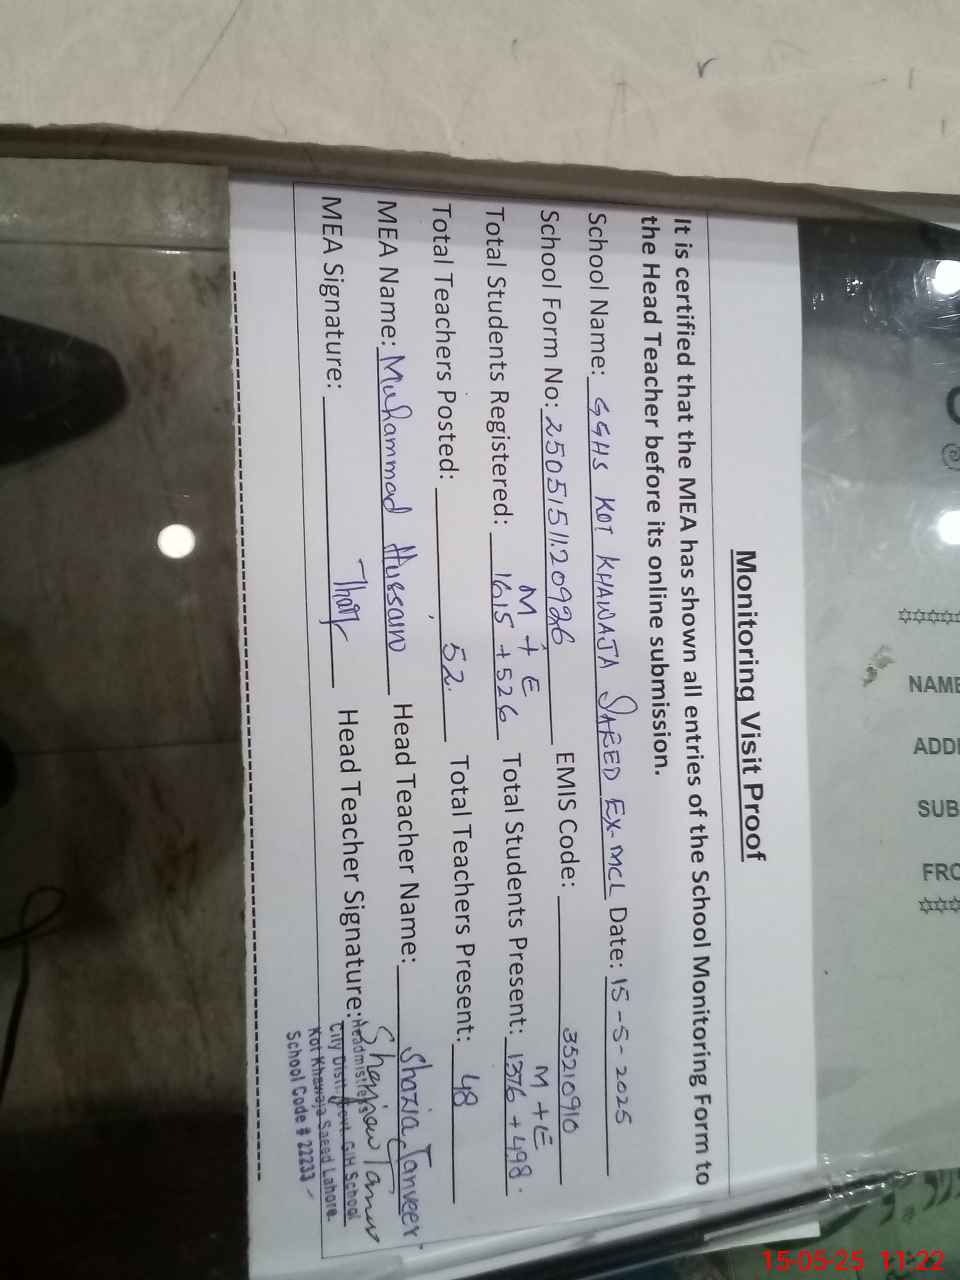 Monitoring Visit Proof
It is certified that the MEA has shown all entries of the School Monitoring Form to
the Head Teacher before its online submission.
School Name: GGHS KOT KHAWAJA SAEED EX-MCL Date: 15-5-2025
School Form No: 25051511:20926 EMIS Code: 35210910
M + E M + E
Total Students Registered: 1615 + 526 Total Students Present: 1376 + 498.
Total Teachers Posted: 52. Total Teachers Present: 48
MEA Name: Muhammad Hussain Head Teacher Name: Shazia Tanveer
MEA Signature: Head Teacher Signature:
Headmistress
City Distt. Govt. G/H School
Kot Khawaja Saeed Lahore.
School Code # 22233 -
NAME
ADD
SUB
FRO
15-05-25 11:22